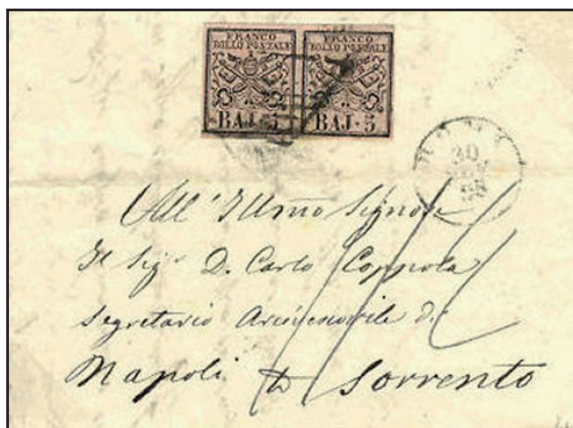 FRANCO
BOLLO POSTALE
BAJ. 5
FRANCO
BOLLO POSTALE
BAJ. 5
ROMA
30
All' Illmo Signore
Il Sigr D. Carlo Coppola
Segretario Arcivescovile di
Napoli Sorrento